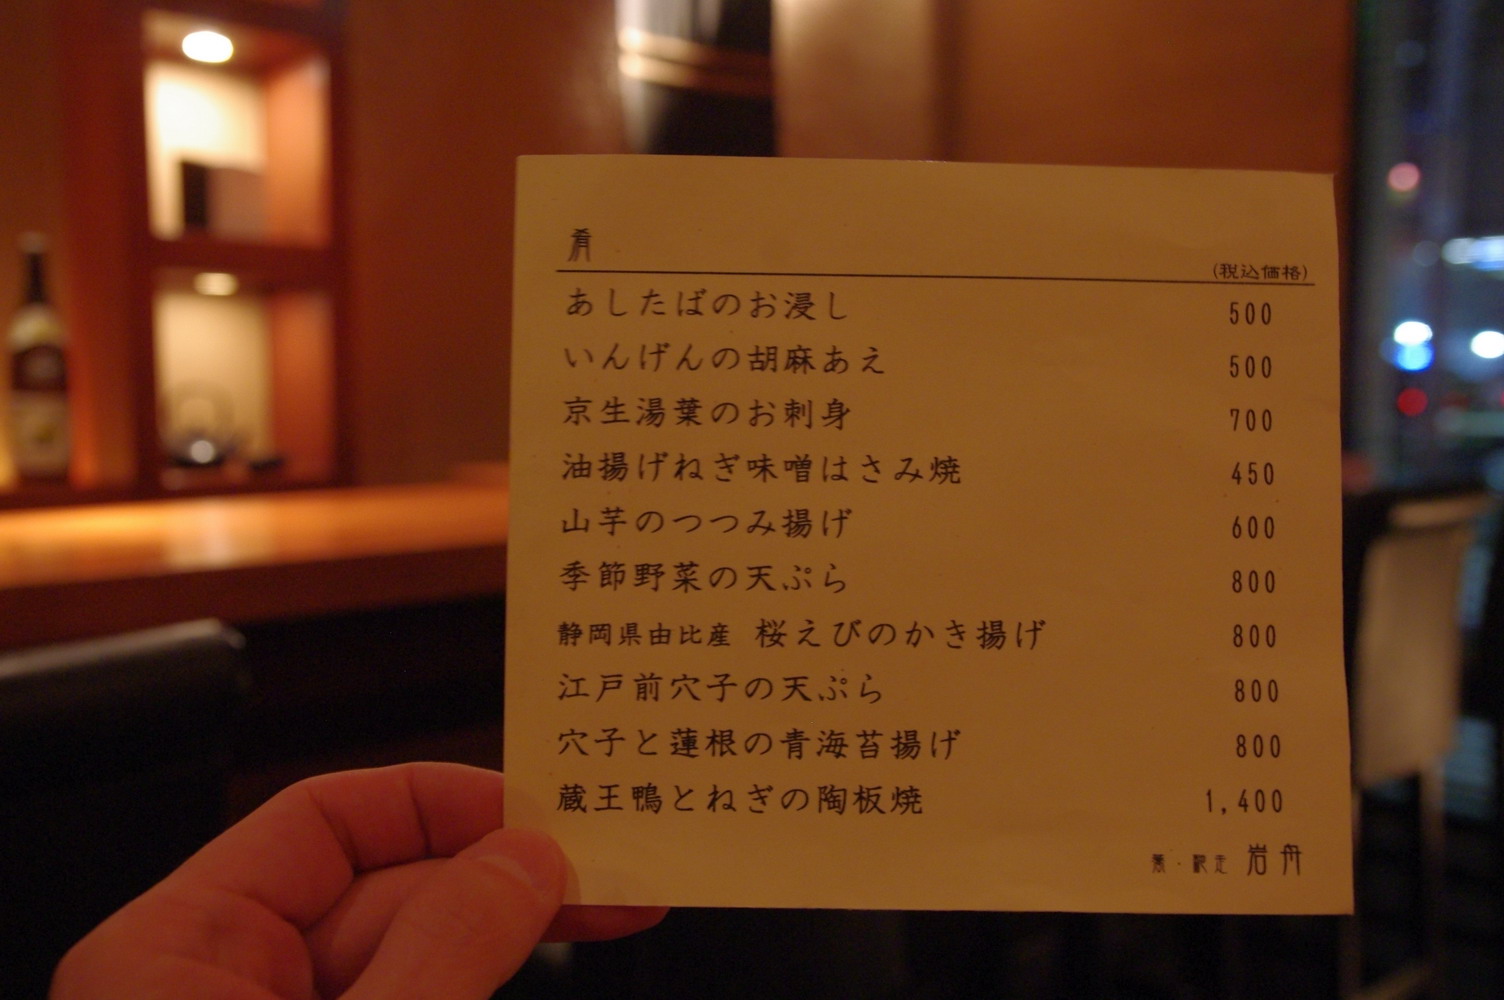 肴
(税込価格)
あしたばのお浸し 500
いんげんの胡麻あえ 500
京生湯葉のお刺身 700
油揚げねぎ味噌はさみ焼 450
山芋のつつみ揚げ 600
季節野菜の天ぷら 800
静岡県由比産 桜えびのかき揚げ 800
江戸前穴子の天ぷら 800
穴子と蓮根の青海苔揚げ 800
蔵王鴨とねぎの陶板焼 1,400
岩舟